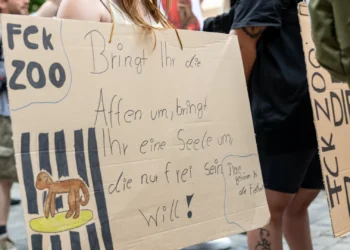 FCK
ZOO
Bringt Ihr die
Affen um, bringt
Ihr eine Seele um,
die nur frei sein
will!
Tiere
gehören in
die Freiheit
FCK
ZOO